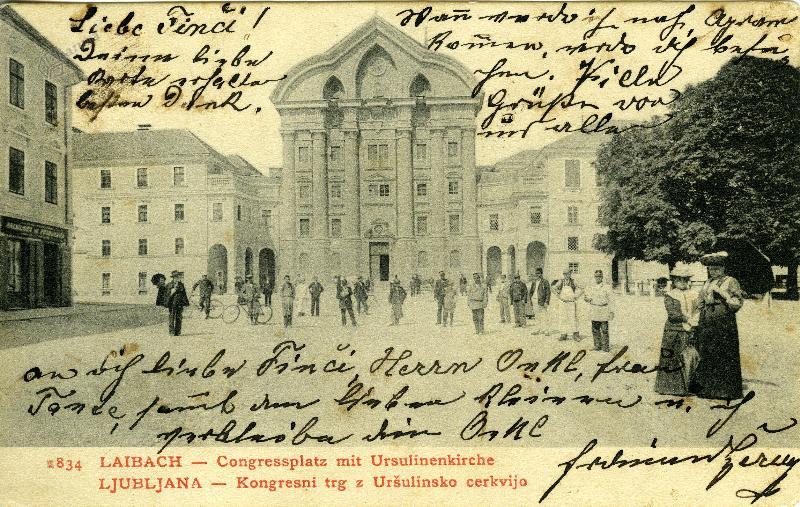 Liebe Finči!
Deine liebe
Karte erhalten
besten Dank.
Wann werde ich nach Agram
Kommen, werde ich besu-
chen. Viele
Grüße von
uns allen
an dich liebe Finči, Herrn Onkl, frau
Tante, samt den lieben Kleinen u. ich
verbleibe dein Onkl
1834 LAIBACH — Congressplatz mit Ursulinenkirche
LJUBLJANA — Kongresni trg z Uršulinsko cerkvijo